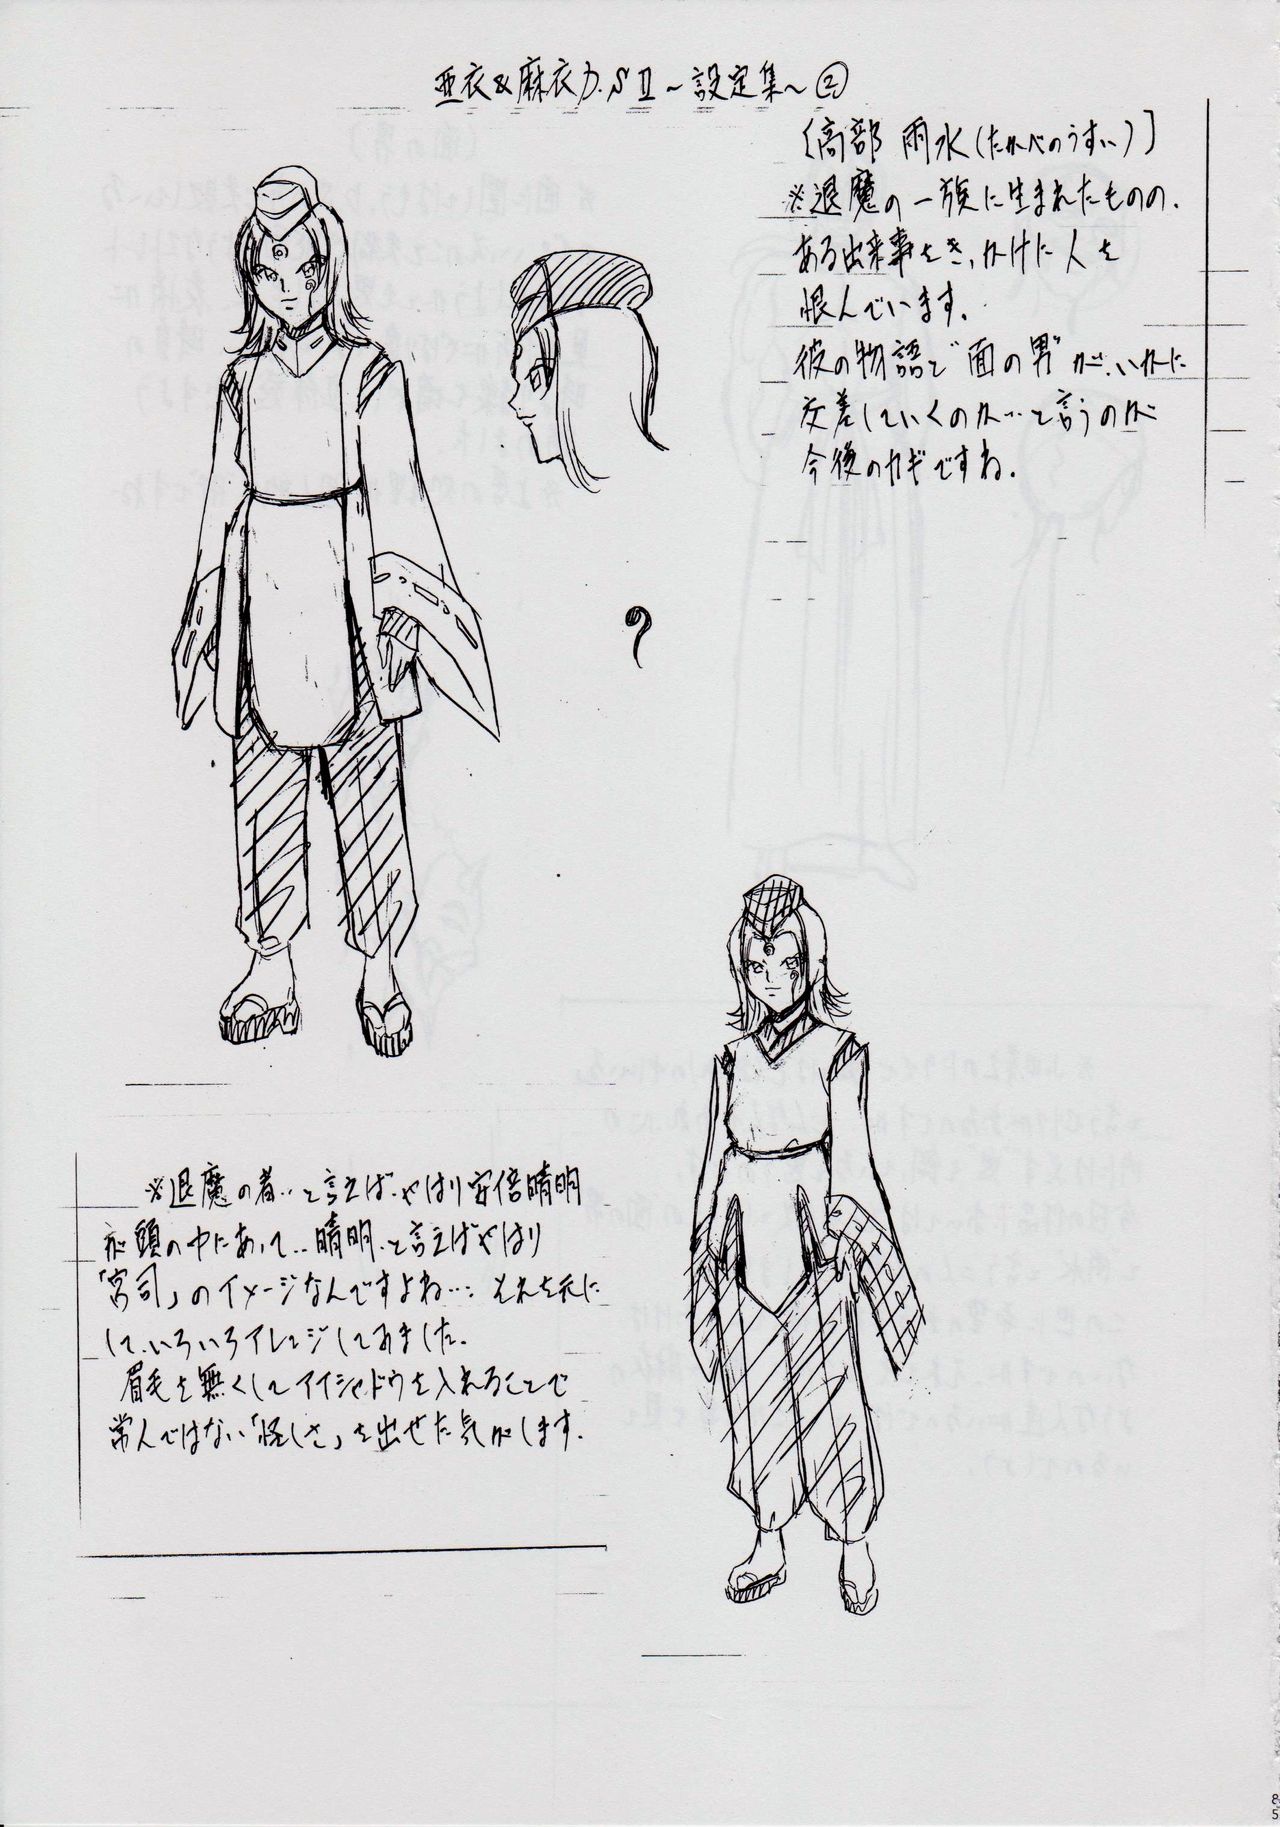 亜衣&麻衣D.SⅡ～設定集～②
〔高部 雨水(たかべのうすい)〕
※退魔の一族に生まれたものの、
ある出来事をきっかけに人を
恨んでいます。
彼の物語で"面の男"が、いかに
交差していくのか…と言うのが
今後のカギですね。
※退魔の者‥と言えば、やはり安倍晴明
が頭の中にあって‥晴明、と言えばやはり
「宮司」のイメージなんですよね…。それを元に
して、いろいろアレンジしてみました。
眉毛を無くしてアイシャドウを入れることで
常人ではない「怪しさ」を出せた気がします。
85